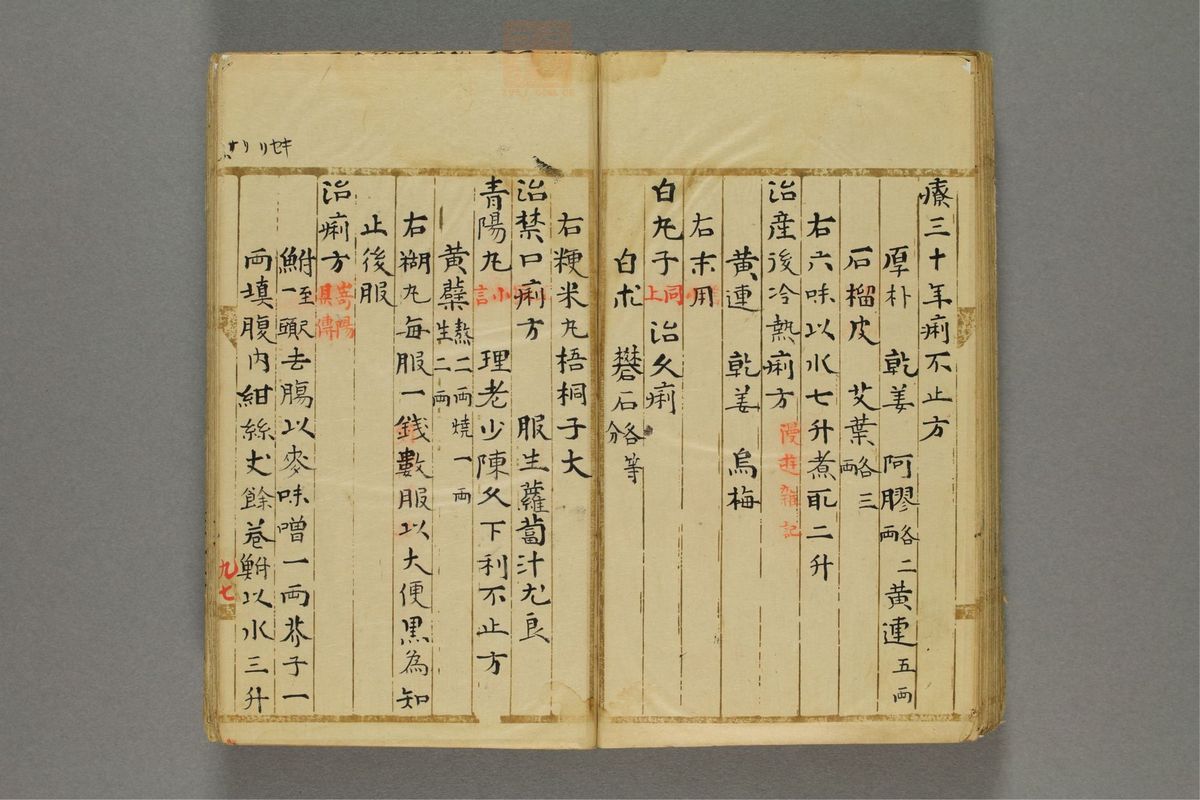 療三十年痢不止方
厚朴 乾姜 阿膠各二兩 黃連五兩
石榴皮 艾葉各三兩
右六味以水七升煮取二升
治産後冷熱痢方 漫遊雜記
黃連 乾姜 烏梅
右末用
白丸子 同上 治久痢
白朮 礬石各等分
右粳米丸梧桐子大
治禁口痢方 服生蘿蔔汁尤良
青陽丸 小言 理老少陳久下利不止方
黃蘗熬二兩燒一兩生二兩
右糊丸每服一錢數服以大便黒為知
止後服
治痢方 嵜陽倶傳
鮒一頭至尺去腸以麥味噌一兩芥子一
兩填腹内紺絲丈餘卷鮒以水三升
九七